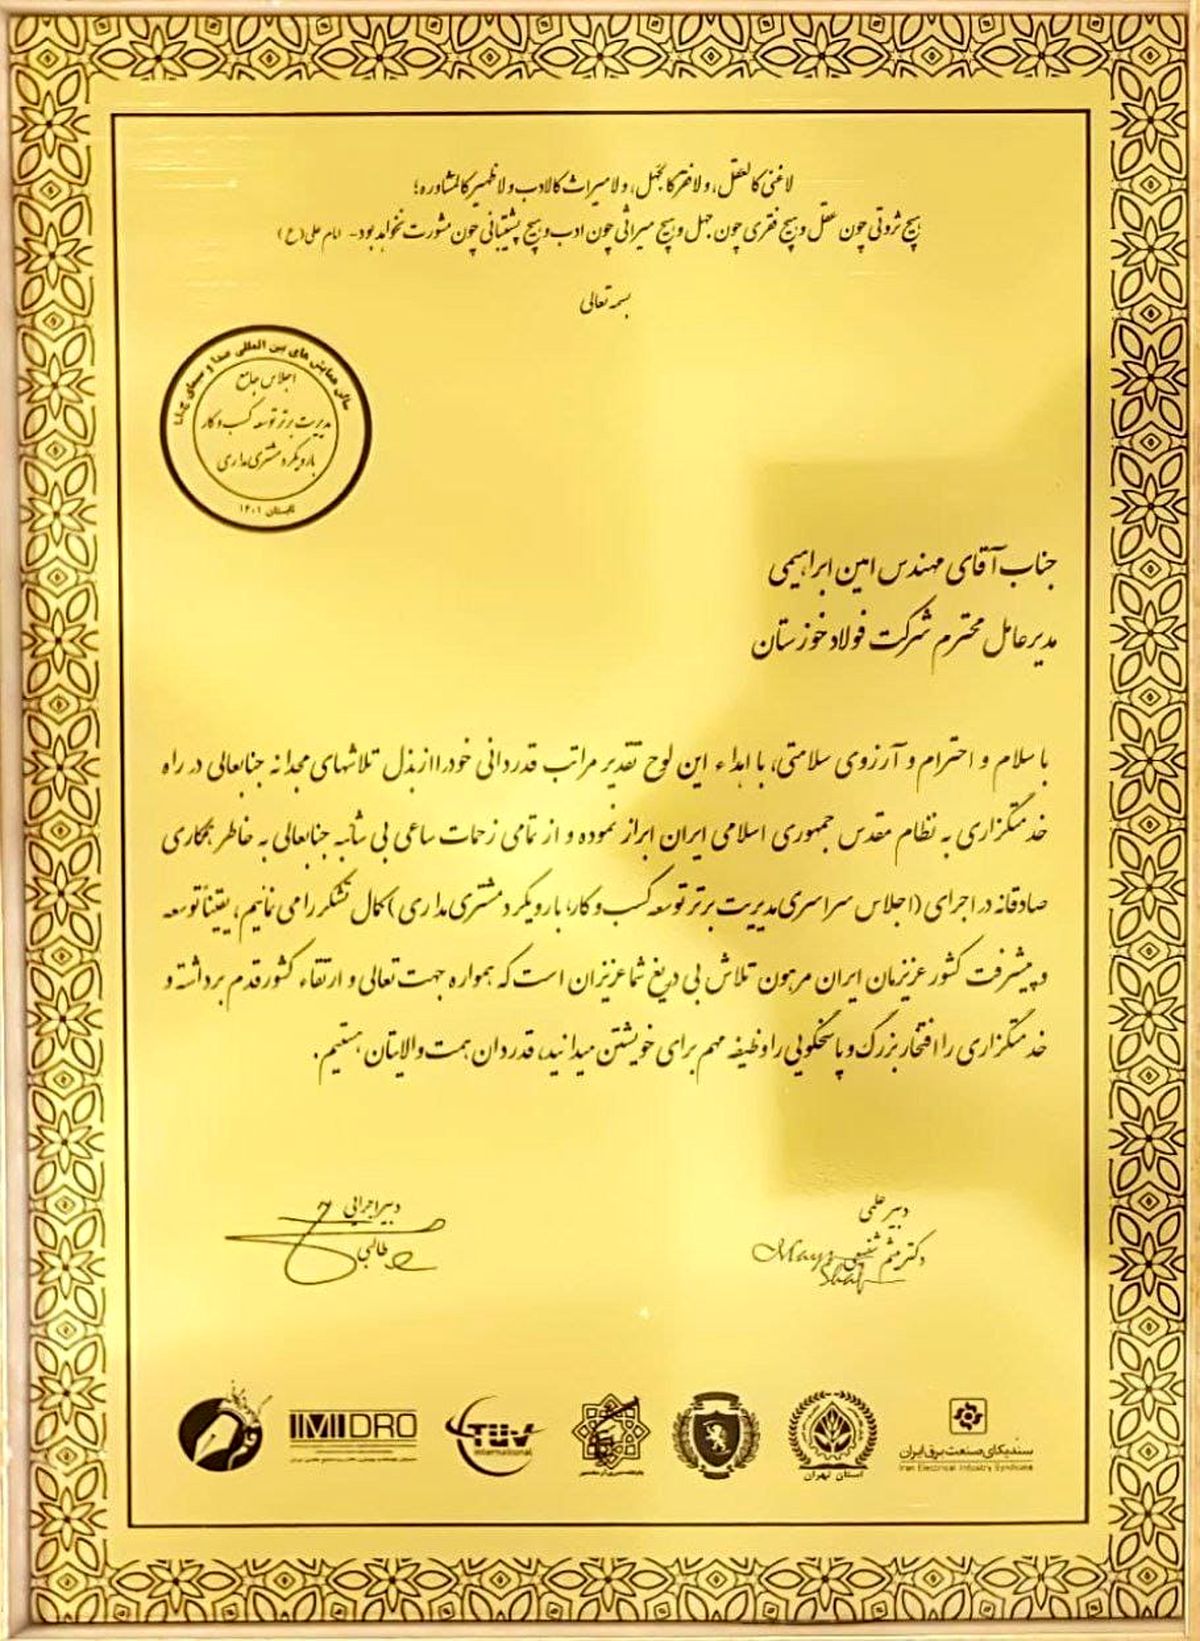 لاغنی کالعقل، ولافقر کالجهل، ولامیراث کالادب و لاظهیر کالمشاوره؛
هیچ ثروتی چون عقل و هیچ فقری چون جهل و هیچ میراثی چون ادب و هیچ پشتیبانی چون مشورت نخواهد بود - امام علی (ع)
بسمه تعالی
سالن همایش های بین المللی صدا و سیمای ج.ا.ا
اجلاس جامع
مدیریت برتر توسعه کسب و کار
با رویکرد مشتری مداری
تابستان ۱۴۰۱
جناب آقای مهندس امین ابراهیمی
مدیرعامل محترم شرکت فولاد خوزستان
با سلام و احترام و آرزوی سلامتی، با اهداء این لوح تقدیر مراتب قدردانی خود را از بذل تلاشهای مجدانه جنابعالی در راه
خدمتگزاری به نظام مقدس جمهوری اسلامی ایران ابراز نموده و از تمامی زحمات ساعی بی شائبه جنابعالی به خاطر همکاری
صادقانه در اجرای (اجلاس سراسری مدیریت برتر توسعه کسب و کار، با رویکرد مشتری مداری) کمال تشکر را می نمائیم، یقیناً توسعه
و پیشرفت کشور عزیزمان ایران مرهون تلاش بی دریغ شما عزیزان است که همواره جهت تعالی و ارتقاء کشور قدم برداشته و
خدمتگزاری را افتخار بزرگ و پاسخگویی را وظیفه مهم برای خویشتن میدانید، قدردان همت والایتان هستیم.
دبیر علمی
دکتر میثم شفیعی
دبیر اجرایی
طالبی
IMIDRO
TÜV
international
استان تهران
سندیکای صنعت برق ایران
Iran Electrical Industry Syndicate